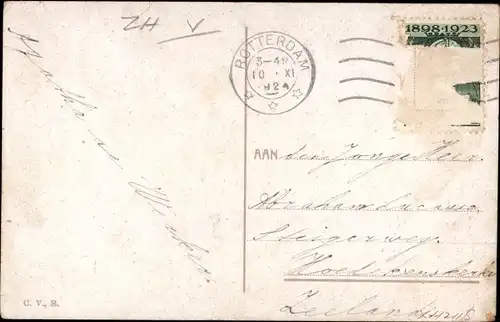 ZH V
ROTTERDAM
3-4N
10 XI
1924
1898 1923
Agatha
AAN den Jonge Heer
Abraham
Steigerweg
Zeeland
C. V., R.